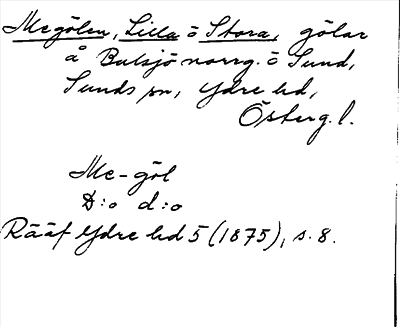 Megölen, Lilla o Stora, gölar
å Bulsjö norrg. o Sund,
Sunds sn, Ydre hd,
Österg.l.
Me-göl
D:o d:o
Rääf Ydre hd 5 (1875), s. 8.